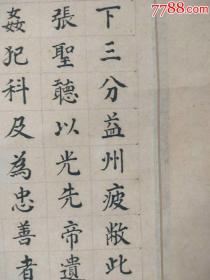 7788.com
下三分益州疲敝此
張聖聽以光先帝遺
姦犯科及為忠善者